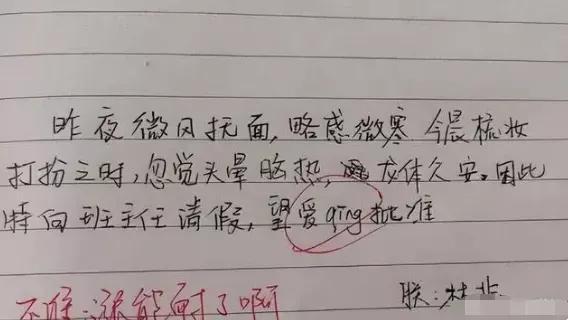 昨夜微风抚面,略感微寒 今晨梳妆
打扮之时,忽觉头晕脑热, 龙体欠安。因此
特向班主任请假,望爱qing批准
朕:杜
不准:涨能耐了啊